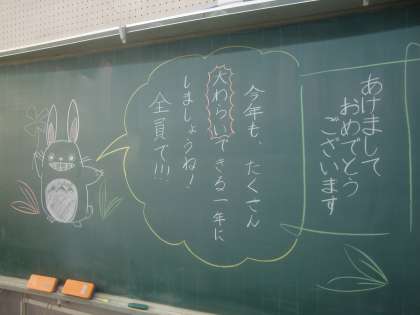 あけまして
おめでとう
ございます
今年も、たくさん
大わらいできる一年に
しましょうね!
全員で!!!